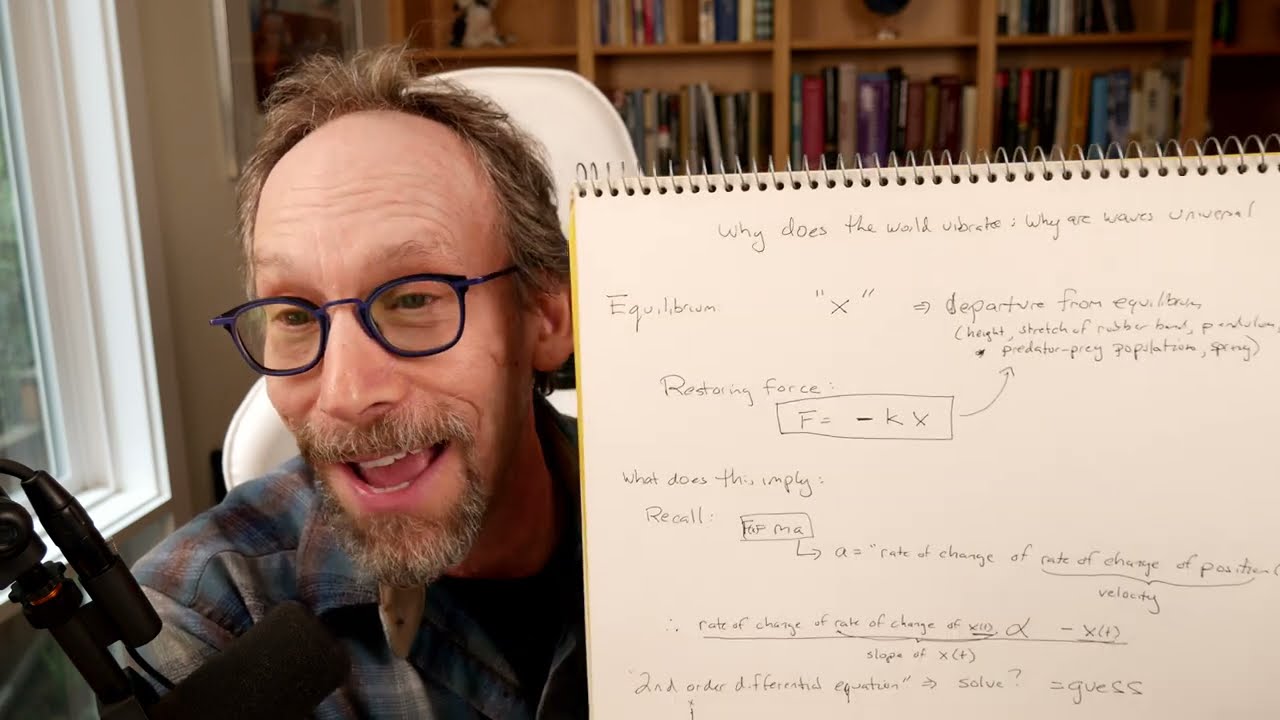 Why does the world vibrate: Why are waves universal
Equilibrium "x" ⇒ departure from equilibrium
(height, stretch of rubber band, pendulum,
predator-prey populations, spring)
Restoring force:
F = - k x
What does this imply:
Recall: ma
a = "rate of change of rate of change of position
velocity
∴ rate of change of rate of change of x(t) ∝ - x(t)
slope of x(t)
"2nd order differential equation" ⇒ solve? = guess
x